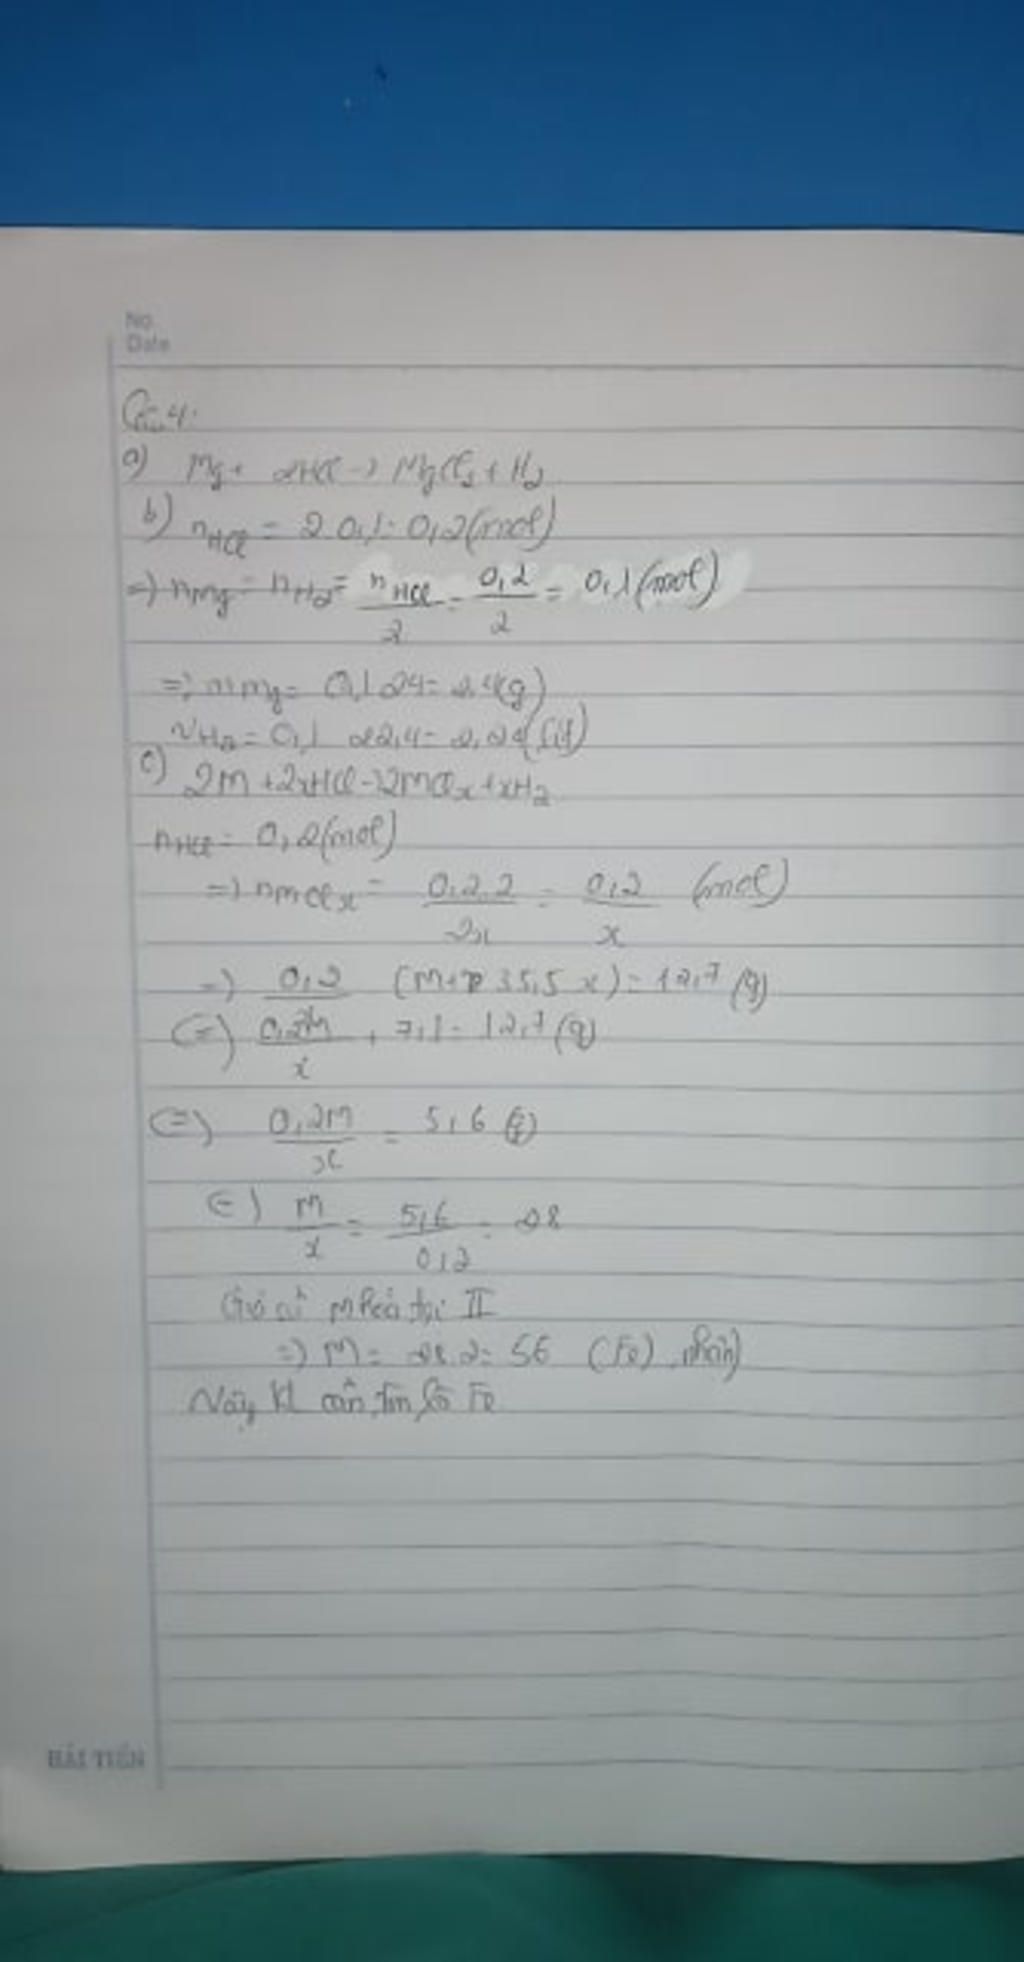 No.
Date
Câu 4:
a) Mg + 2HCl -> MgCl2 + H2
b) nHCl = 2.0,1 = 0,2 (mol)
=> nMg = nH2 = nHCl/2 = 0,2/2 = 0,1 (mol)
=> mMg = 0,1.24 = 2,4 (g)
VH2 = 0,1.22,4 = 2,24 (lít)
c) 2M + 2xHCl -> 2MClx + xH2
nHCl = 0,2 (mol)
=> nMClx = 0,2.2/2x = 0,2/x (mol)
=> 0,2/x (M + 35,5x) = 12,7 (g)
<=> 0,2M/x + 7,1 = 12,7 (g)
<=> 0,2M/x = 5,6 (g)
<=> M/x = 5,6/0,2 = 28
Giả sử M hoá trị II
=> M = 28.2 = 56 (Fe) nhận
Vậy KL cần tìm là Fe
HẢI TIẾN